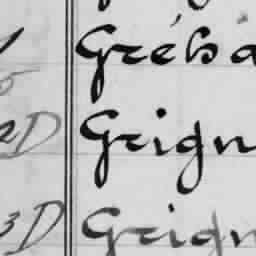 Gréba
2D Grign
3D Grign